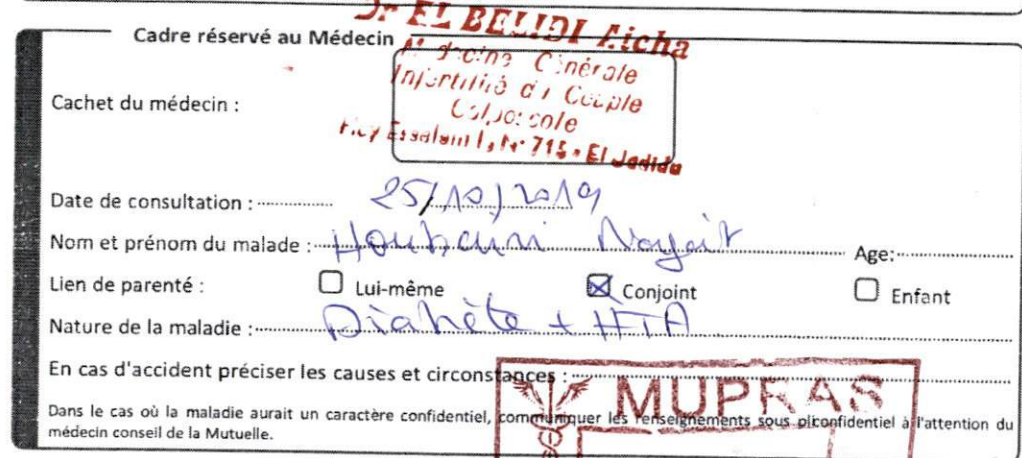 Dr EL BELIDI Aicha
Cadre réservé au Médecin
Médecine Générale
Infertilité du Couple
Colposcopie
Hay Essalam I, N° 715 - El Jadida
Cachet du médecin :
Date de consultation : 25/10/2019
Nom et prénom du malade : Houbaini Age:
Lien de parenté : Lui-même Conjoint Enfant
Nature de la maladie : Diabète + HTA
En cas d'accident préciser les causes et circonstances :
MUPRAS
Dans le cas où la maladie aurait un caractère confidentiel, communiquer les renseignements sous pli confidentiel à l'attention du
médecin conseil de la Mutuelle.